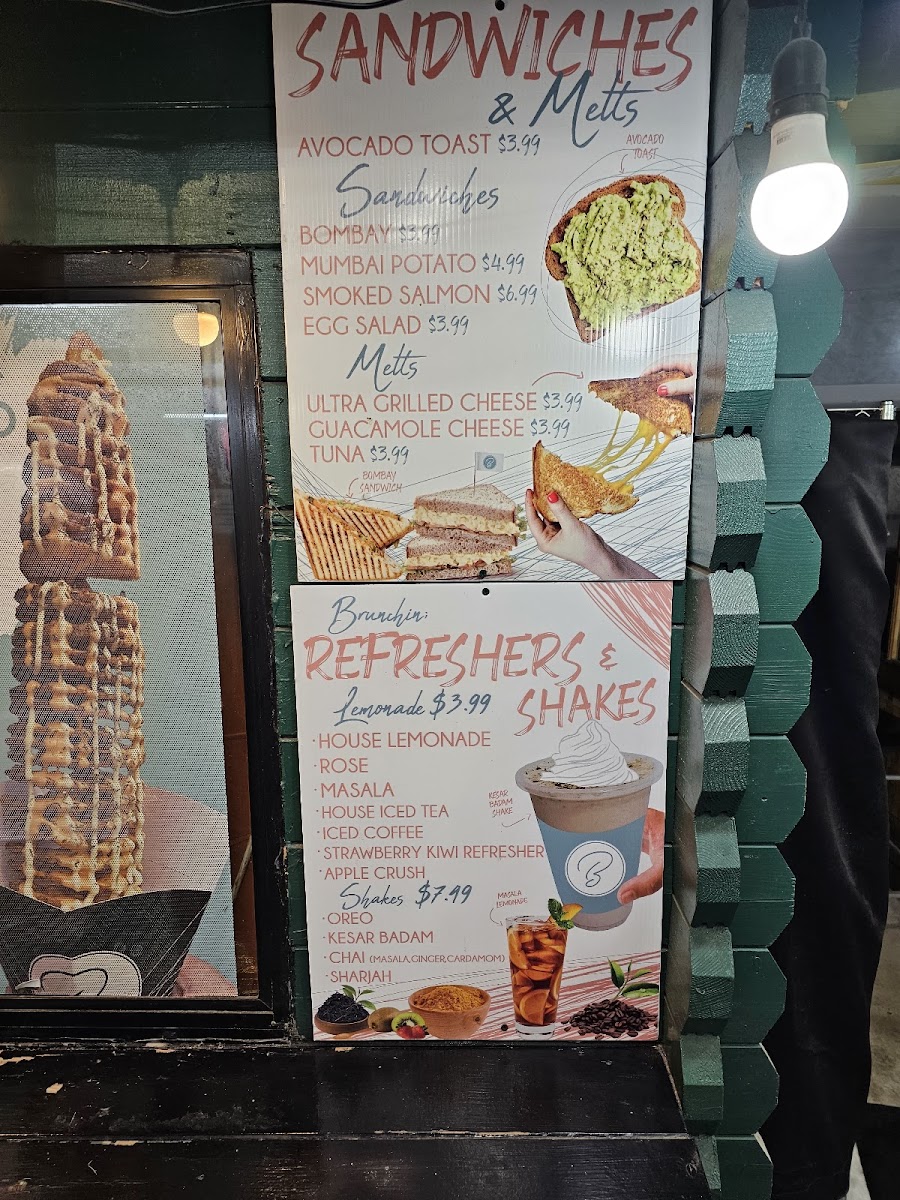 SANDWICHES
& Melts
AVOCADO TOAST $3.99
AVOCADO
TOAST
Sandwiches
BOMBAY $3.99
MUMBAI POTATO $4.99
SMOKED SALMON $6.99
EGG SALAD $3.99
Melts
ULTRA GRILLED CHEESE $3.99
GUACAMOLE CHEESE $3.99
TUNA $3.99
BOMBAY
SANDWICH
B
Brunchin;
REFRESHERS &
SHAKES
Lemonade $3.99
·HOUSE LEMONADE
·ROSE
·MASALA
·HOUSE ICED TEA
·ICED COFFEE
·STRAWBERRY KIWI REFRESHER
·APPLE CRUSH
KESAR
BADAM
SHAKE
B
Shakes $7.99
·OREO
·KESAR BADAM
·CHAI (MASALA,GINGER,CARDAMOM)
·SHARJAH
MASALA
LEMONADE